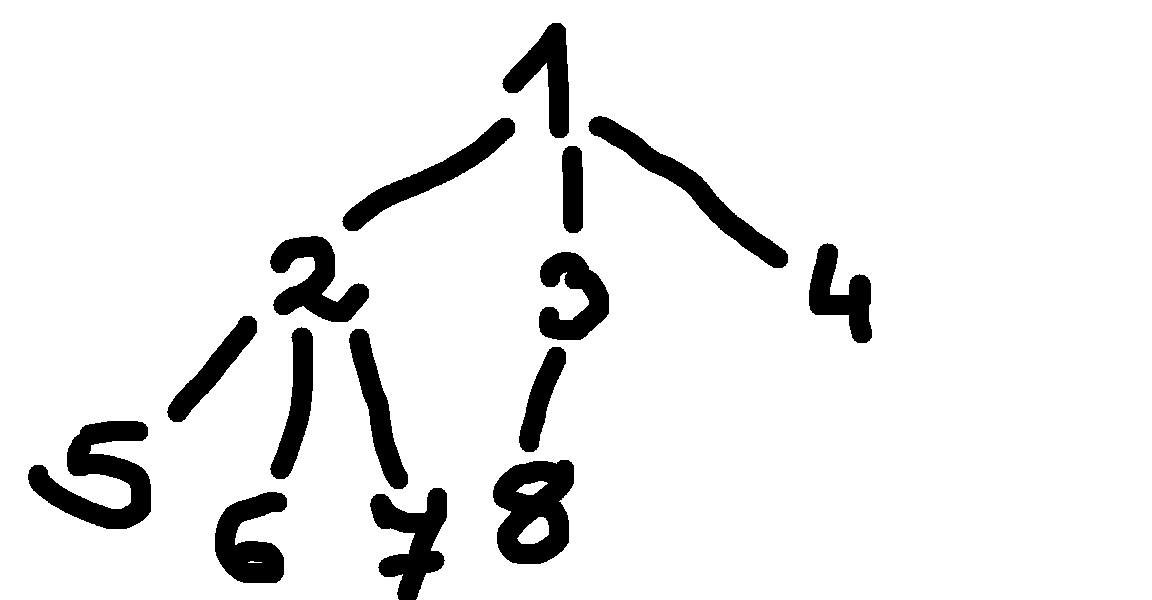 1
2 3 4
5 6 7 8